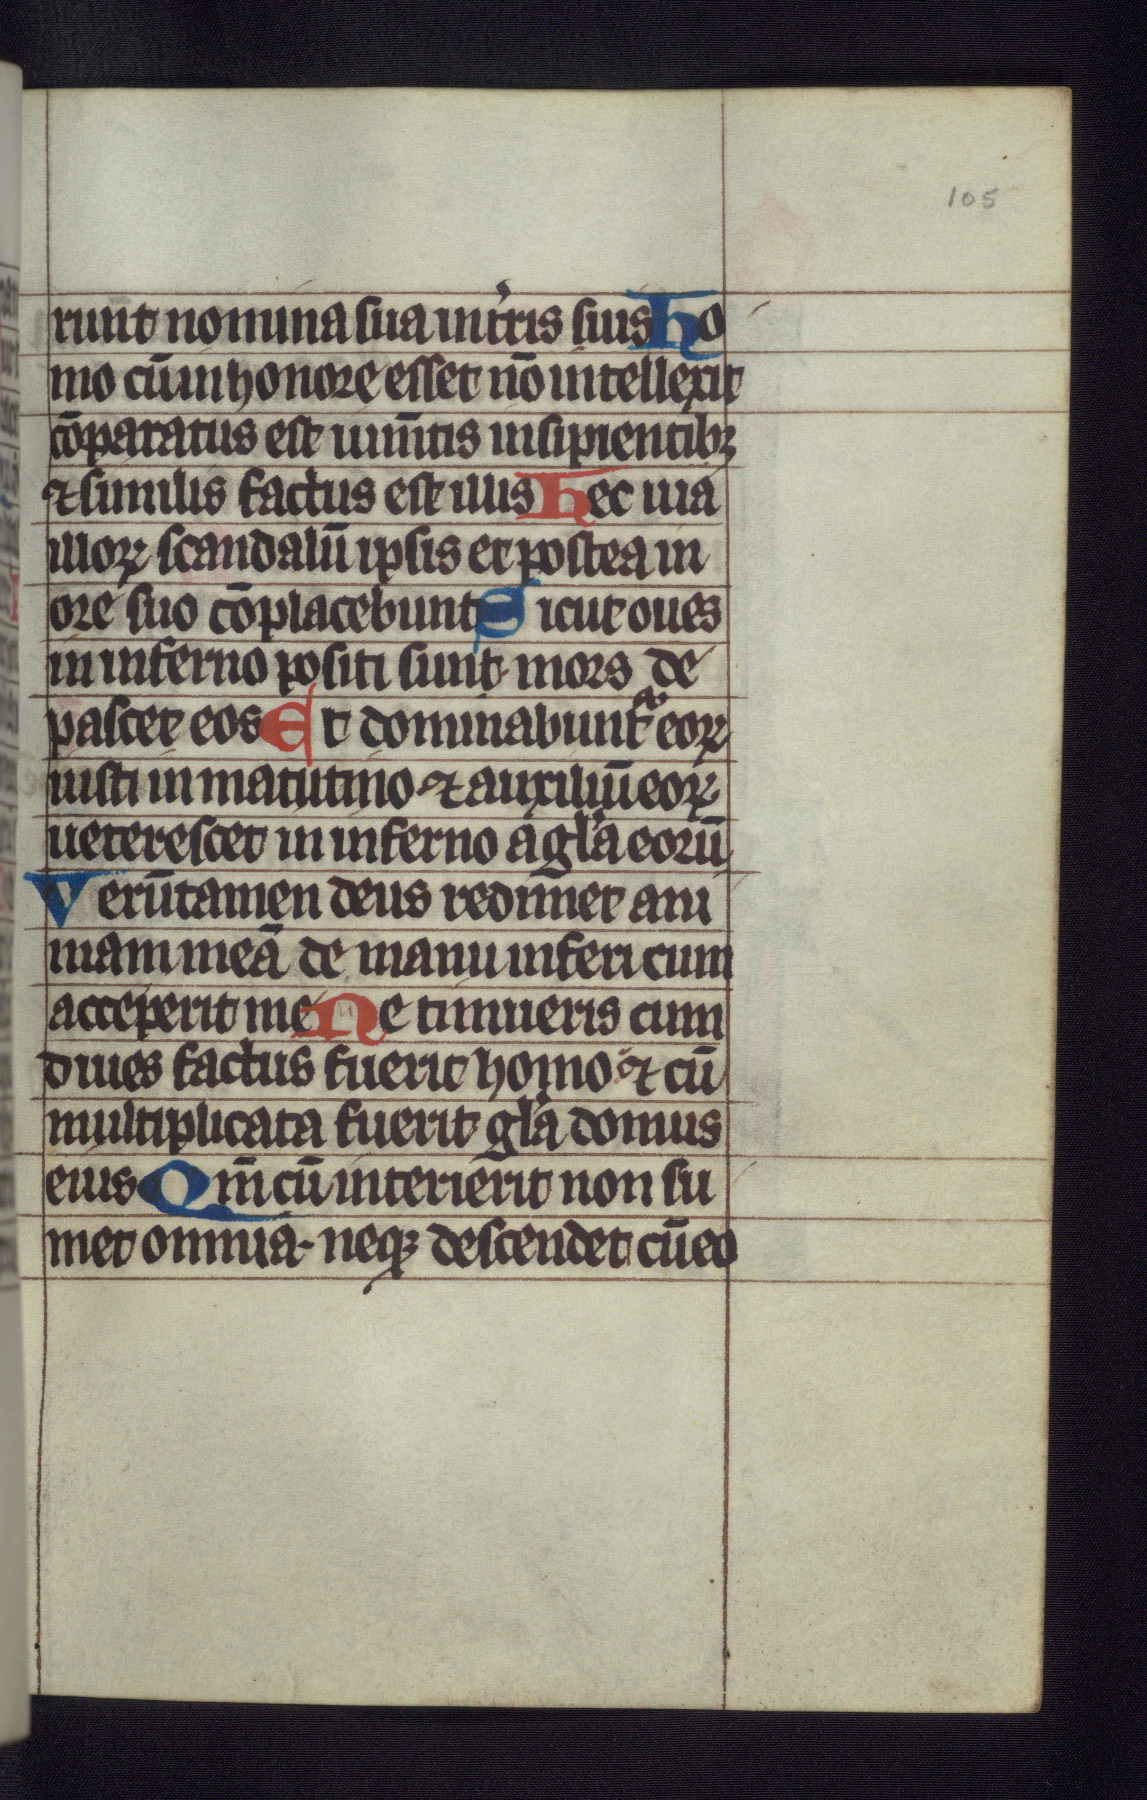 105
runt nomina sua in tr̃is suis Ho
mo cū in honore esset nō intellexit
cōparatus est ium̄tis insipientibꝫ
⁊ similis factus est illis Hec uia
illoꝝ scandalū ipsis et postea in
ore suo cōplacebunt Sicut oues
in inferno positi sunt mors de
pascet eos Et dominabunt᷑ eoꝝ
iusti in matutino ⁊ auxiliū eoꝝ
ueterescet in inferno a gl̄a eorū
Verūtamen deus redimet ani
mam meā de manu inferi cum
acceperit me Ne timueris cum
diues factus fuerit homo ⁊ cū
multiplicata fuerit gl̄a domus
eius Qm̄ cū interierit non su
met omnia neqꝫ descendet cū eo